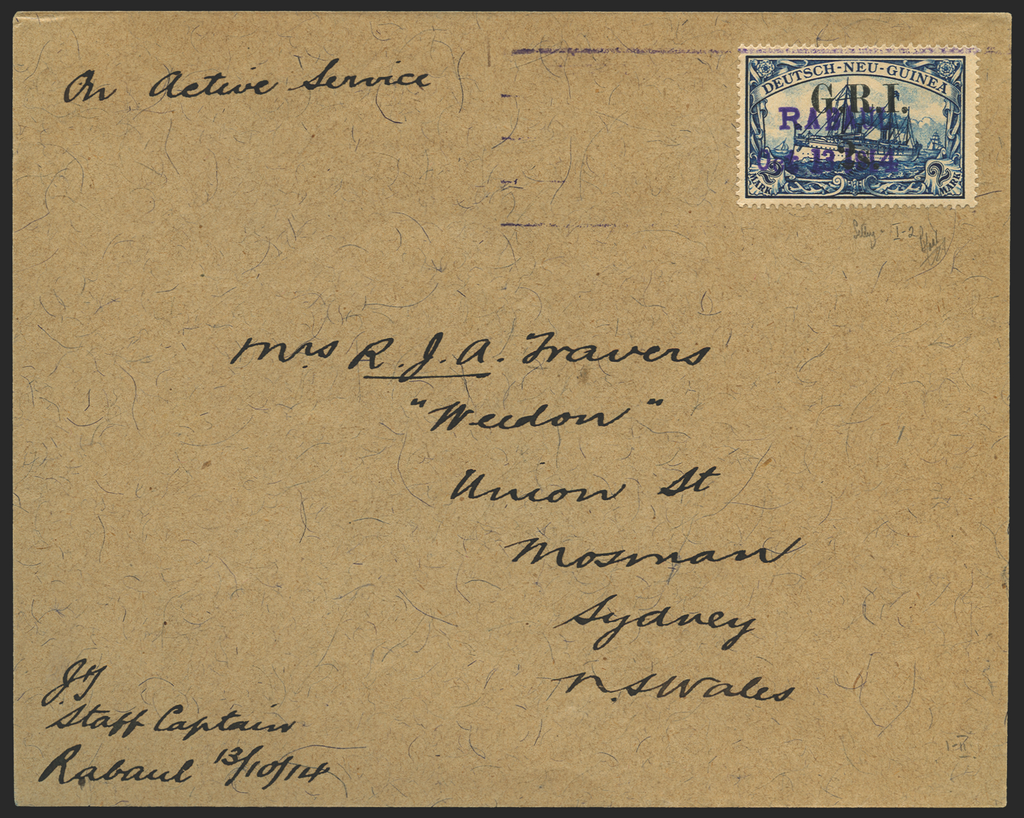 On Active Service
DEUTSCH-NEU-GUINEA
G.R.I.
RABAUL
2 MARK 2 MARK
I-2
Mrs R.J.A. Travers
"Weedon"
Union St
Mosman
Sydney
N.S Wales
JT
Staff Captain
Rabaul 13/10/14
I-II